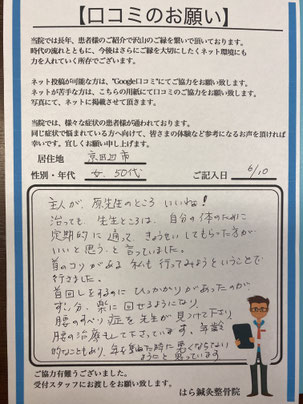 【口コミのお願い】
当院では長年、患者様のご紹介で沢山のご縁を繋いで頂いております。
時代の流れとともに、今後はさらにご縁を大切にしたくネット環境にも
力を入れていく所存でございます。
ネット投稿が可能な方は、"Google口コミ"にてご協力をお願い致します。
ネットが苦手な方は、こちらの用紙にて口コミのご協力をお願い致します。
写真にて、ネットに掲載させて頂きます。
当院では、様々な症状の患者様が通われております。
同じ症状で悩まれている方へ向けて、皆さまの体験など参考になるお声を頂ければ
幸いです。宜しくお願い申し上げます。
居住地 京田辺市
性別・年代 女. 50代 ご記入日 6/10
主人が、原先生のところ いいね!
治っても、先生ところは、自分の体のために
定期的に通って、きょうせいしてもらった方が
いいと思う。と言っていました。
首のコリがある私も行ってみようということで
行きました。
首回しをするのにひっかかりがあったのが
すこし分、楽に回せるようになり
腰のすべり症を先生が見つけて下さり
腰の治療もして下さっています。年齢
的なこともあり、年を重ねた時に悪くならない
ようにと思っています
ご協力有難うございました。
受付スタッフにお渡しをお願い致します。
はら鍼灸整骨院